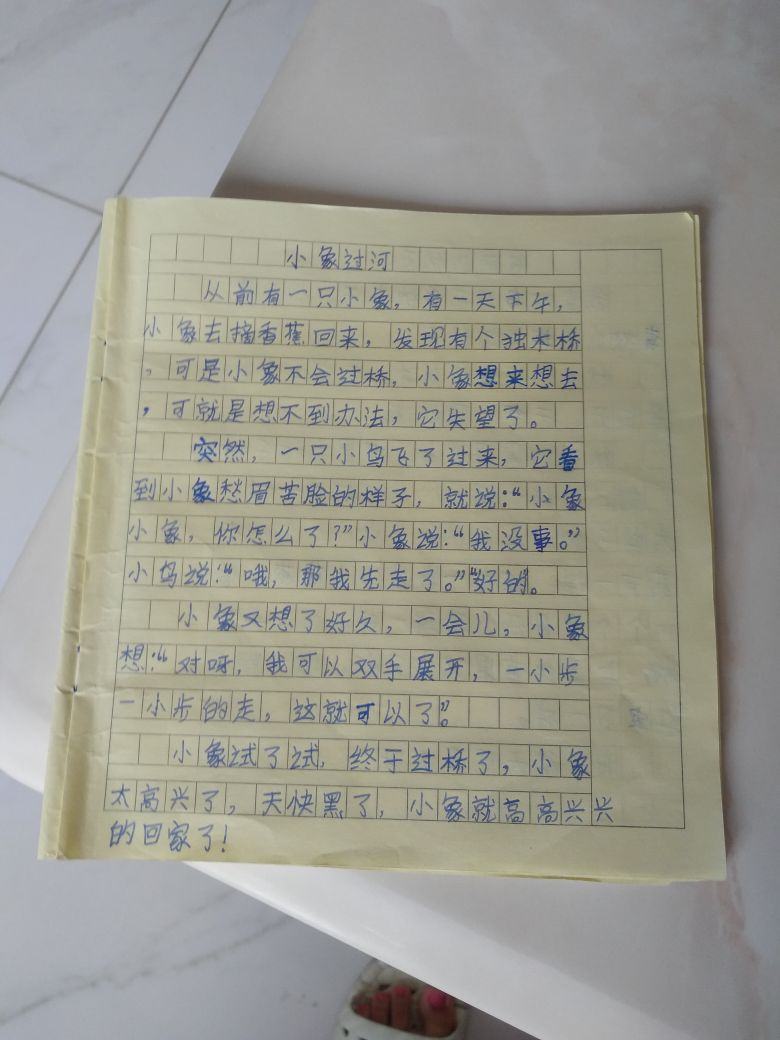 小象过河
从前有一只小象，有一天下午，
小象去摘香蕉回来，发现有个独木桥
，可是小象不会过桥，小象想来想去
，可就是想不到办法，它失望了。
突然，一只小鸟飞了过来，它看
到小象愁眉苦脸的样子，就说：“小象
小象，你怎么了？”小象说：“我没事。”
小鸟说：“哦，那我先走了。”“好的。
小象又想了好久，一会儿，小象
想：“对呀，我可以双手展开，一小步
一小步的走，这就可以了”。
小象试了试，终于过桥了，小象
太高兴了，天快黑了，小象就高高兴兴
的回家了！